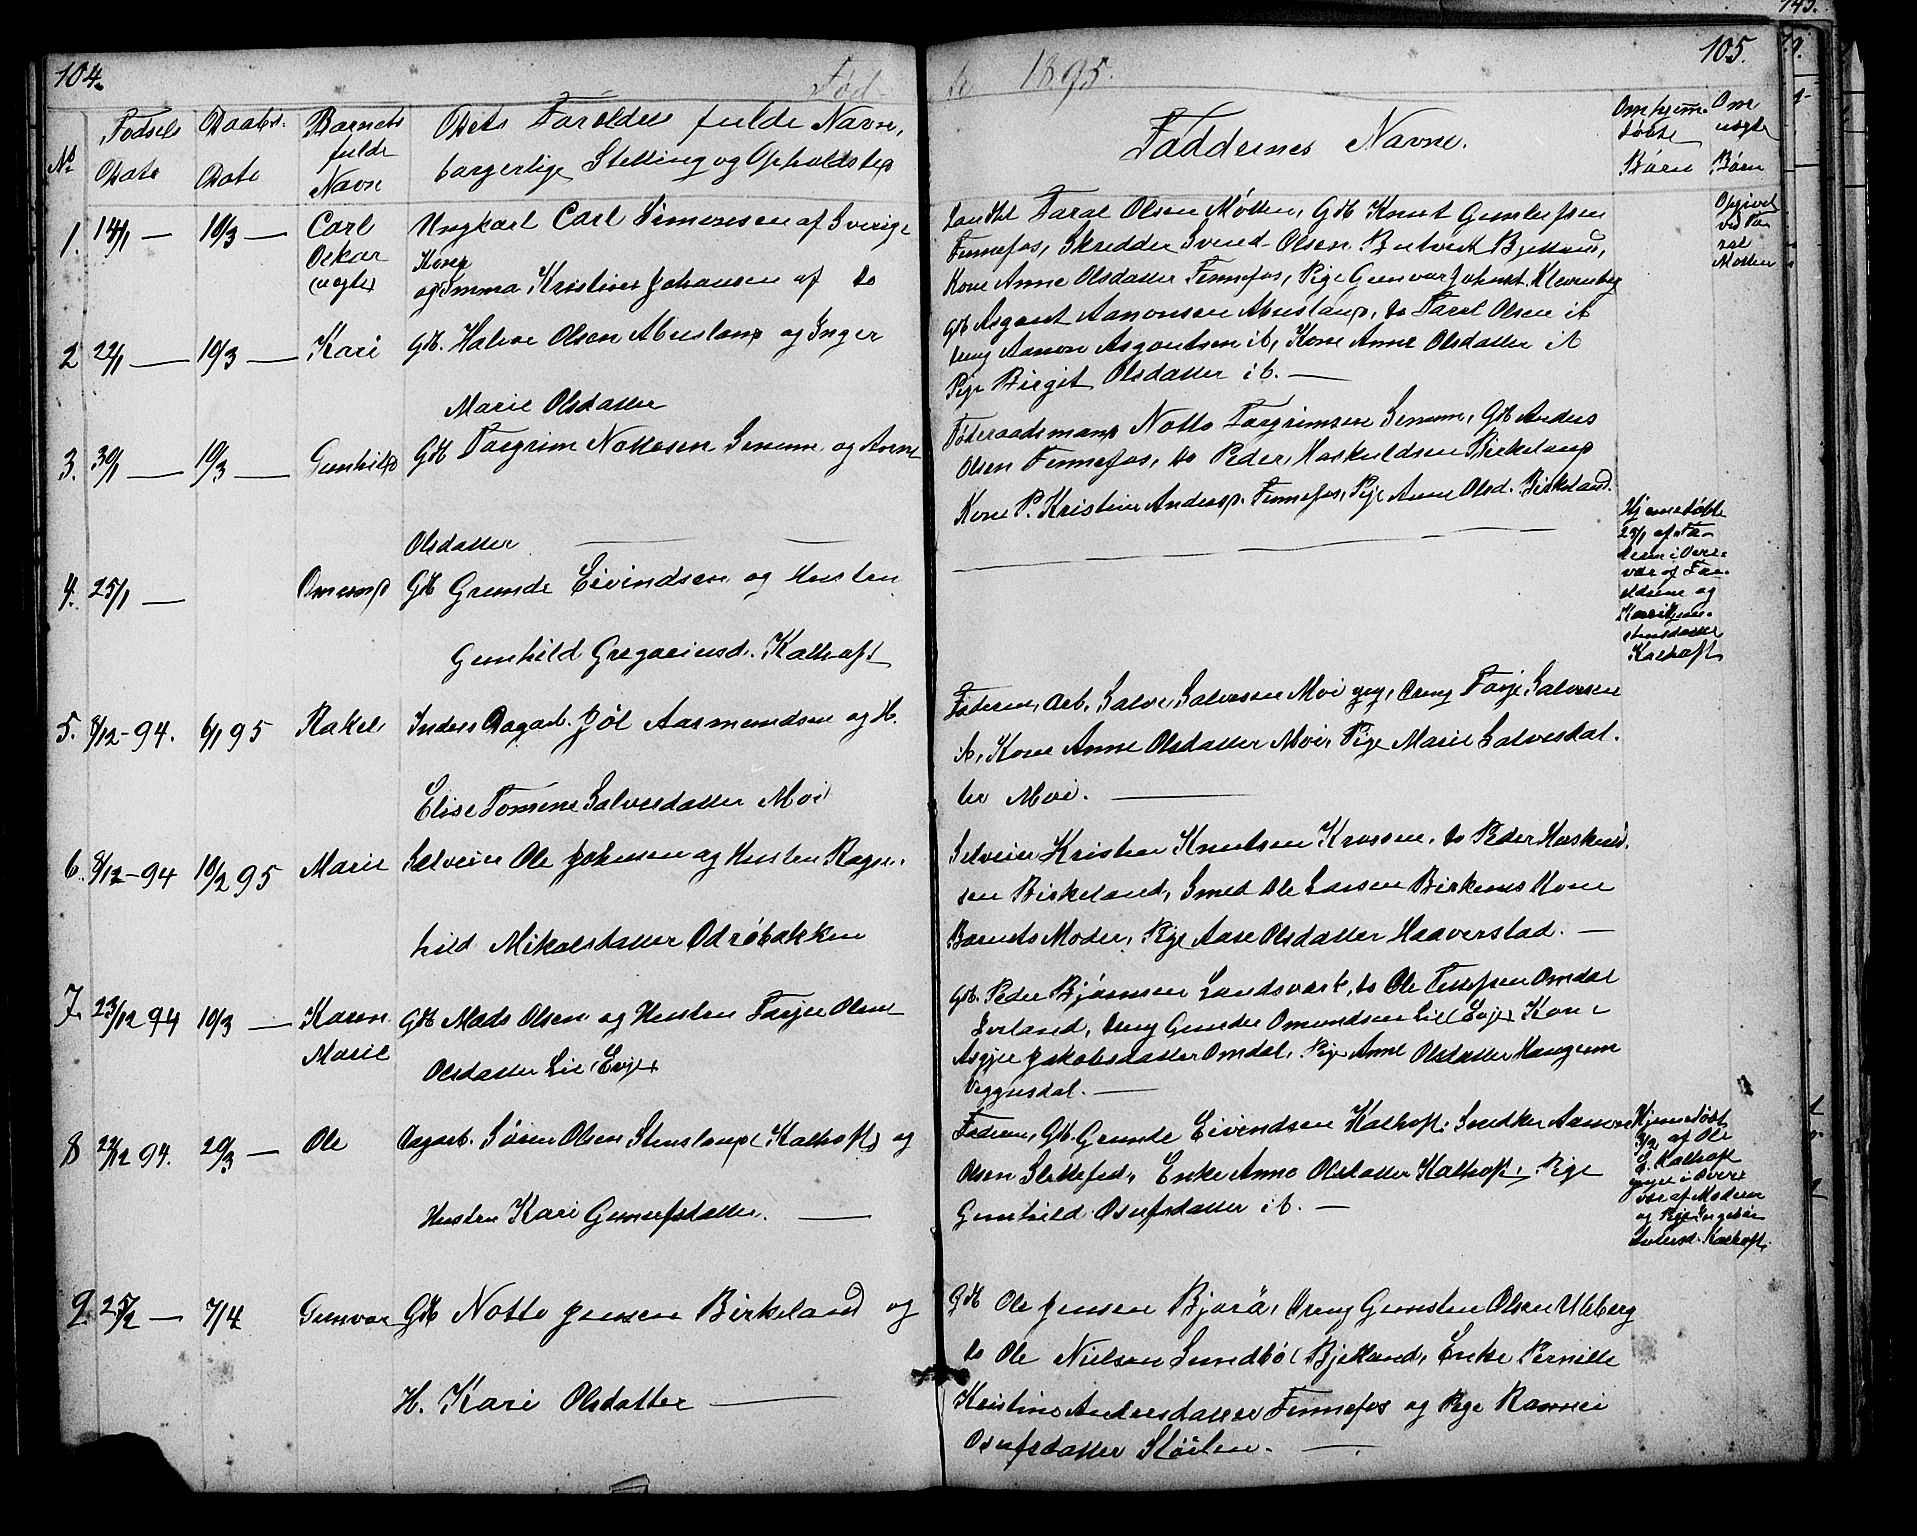 104.
Fødte 1895.
105.
No
Fødsels Date
Daabs Date
Barnets fulde Navn
Dets Forældres fulde Navn,
borgerlige Stilling og Opholdsted
Faddernes Navne.
Om hjemmedøbte Børn
Om uægte Børn
1. 14/1 — 10/3 — Carl Oskar (ægte)
Ungkarl Carl Simonsen af Sverige
og Kone Emma Kristine Johansen af do
Olsen Møllen, Gbr Knut Gunlufsen
Fennefos, Skredder Svend Olsen
Kone Anne Olsdatter Fennefos, Pige Gunvor
2 22/1 — 10/3 — Kari
Gbr. Halvor Olsen Abusland og Inger
Marie Olsdatter
Gbr Asgaut Aanonsen Abusland, do Tarel Olsen ib
Dreng Aanon Asgautsen ib, Kone Anne Olsdatter ib
Pige Birgit Olsdatter ib. —
3. 30/1 — 10/3 — Gunhild
Gbr Torgrim Nottosen Senum og Anne
Olsdatter
Føderaadsmand Notto Torgrimsen Senum, Gbr Anders
Olsen Fennefos, do Peder Haskuldsen Birkeland
Kone P. Kristine Andersd. Fennefos, Pige Anne Olsd. Birkeland.
4. 25/1 — Omund
Gbr Grunde Eivindsen og Hustru
Gunhild Gregoriusd. Kalhoft
Hjemmedøbt
25/1 af
Kalhoft
5. 8/12-94. 6/1 95 Rakel
Inders Dagarb. Jøl Aasmundsen og H.
Elise Tomine Salvesdatter Moi
Faderen, Arb. Salve Salvesen Moi, Dreng Salvesen
ib, Kone Anne Olsdatter Moi, Pige Marie Salvesdat-
ter Moi. —
6. 8/12-94 10/2 95 Marie
Selveier Ole Johnsen og Hustru Ragn-
hild Mikalsdatter Odrobakken
Selveier Kristen Knutsen Krossen, do Peder Haskuld-
sen Birkeland, Smed Ole Larsen Birkenes Kone
Barnets Moder, Pige Aase Olsdatter Haaverstad. —
7. 23/12 94 10/3 — Karen Marie
Gbr Mads Olsen og Hustru Torjer Olene
Olsdatter Lie (Evje)
Gbr. Peder Bjørnsen Landsverk, do Ole Omdal
Dreng Gunder Omundsen Lie (Evje) Kone
Jakobsdatter Omdal, Pige Anne Olsdatter
8 22/12 94. 20/3 — Ole
Dagarb. Søren Olsen Stensland (Kalhoft) og
Hustru Kari Gunufsdatter. —
Faderen, Gbr. Grunde Eivindsen Kalhoft, Snedker Aanon
Olsen Slettefed, Enke Anne Olsdatter Kalhoft, Pige
Gunhild Osufsdatter ib. —
Hjemmedøbt
3/2 af Ole
G. Kalhoft
vær af Moderen
9. 25/2 — 7/4 Gunvor
Gbr Notto Jensen Birkeland og
H. Kari Olsdatter —
Gbr Ole Jensen Bjorå, Dreng Gunsten Olsen Uleberg
do Ole Nielsen Sundbø (Bjelland), Enke Pernille
Kristine Andersdatter Fennefos og Pige Rannei
Osufsdatter Støilen. —